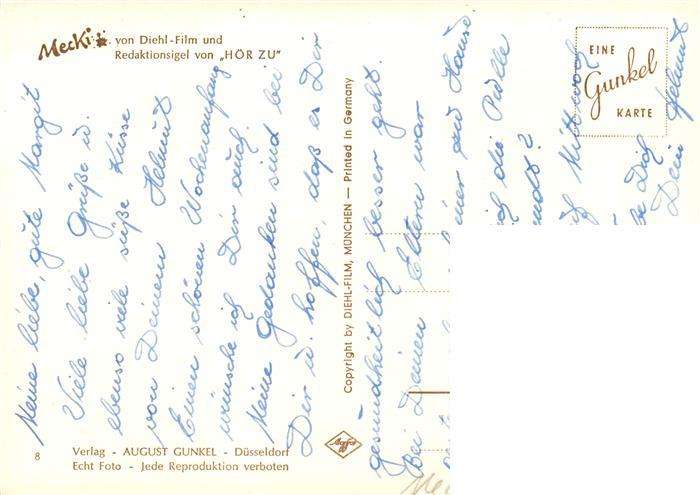 Mecki
von Diehl-Film und
Redaktionsigel von „HÖR ZU"
EINE
Gunkel
KARTE
Meine liebe, gute Margit
Viele liebe Grüße u.
ebenso viele süße Küsse
von Deinem Helmut
Einen schönen Wochenanfang
wünsche ich Dir auch.
Meine Gedanken sind bei
Dir u. hoffen, daß es Dir
Copyright by DIEHL-FILM, MÜNCHEN — Printed in Germany
gesundheitlich besser geht.
Bei Deinen Eltern war
zu Hause
die Pulle
Mittwoch
Dich
Dein Helmut
8
Verlag - AUGUST GUNKEL - Düsseldorf
Echt Foto - Jede Reproduktion verboten